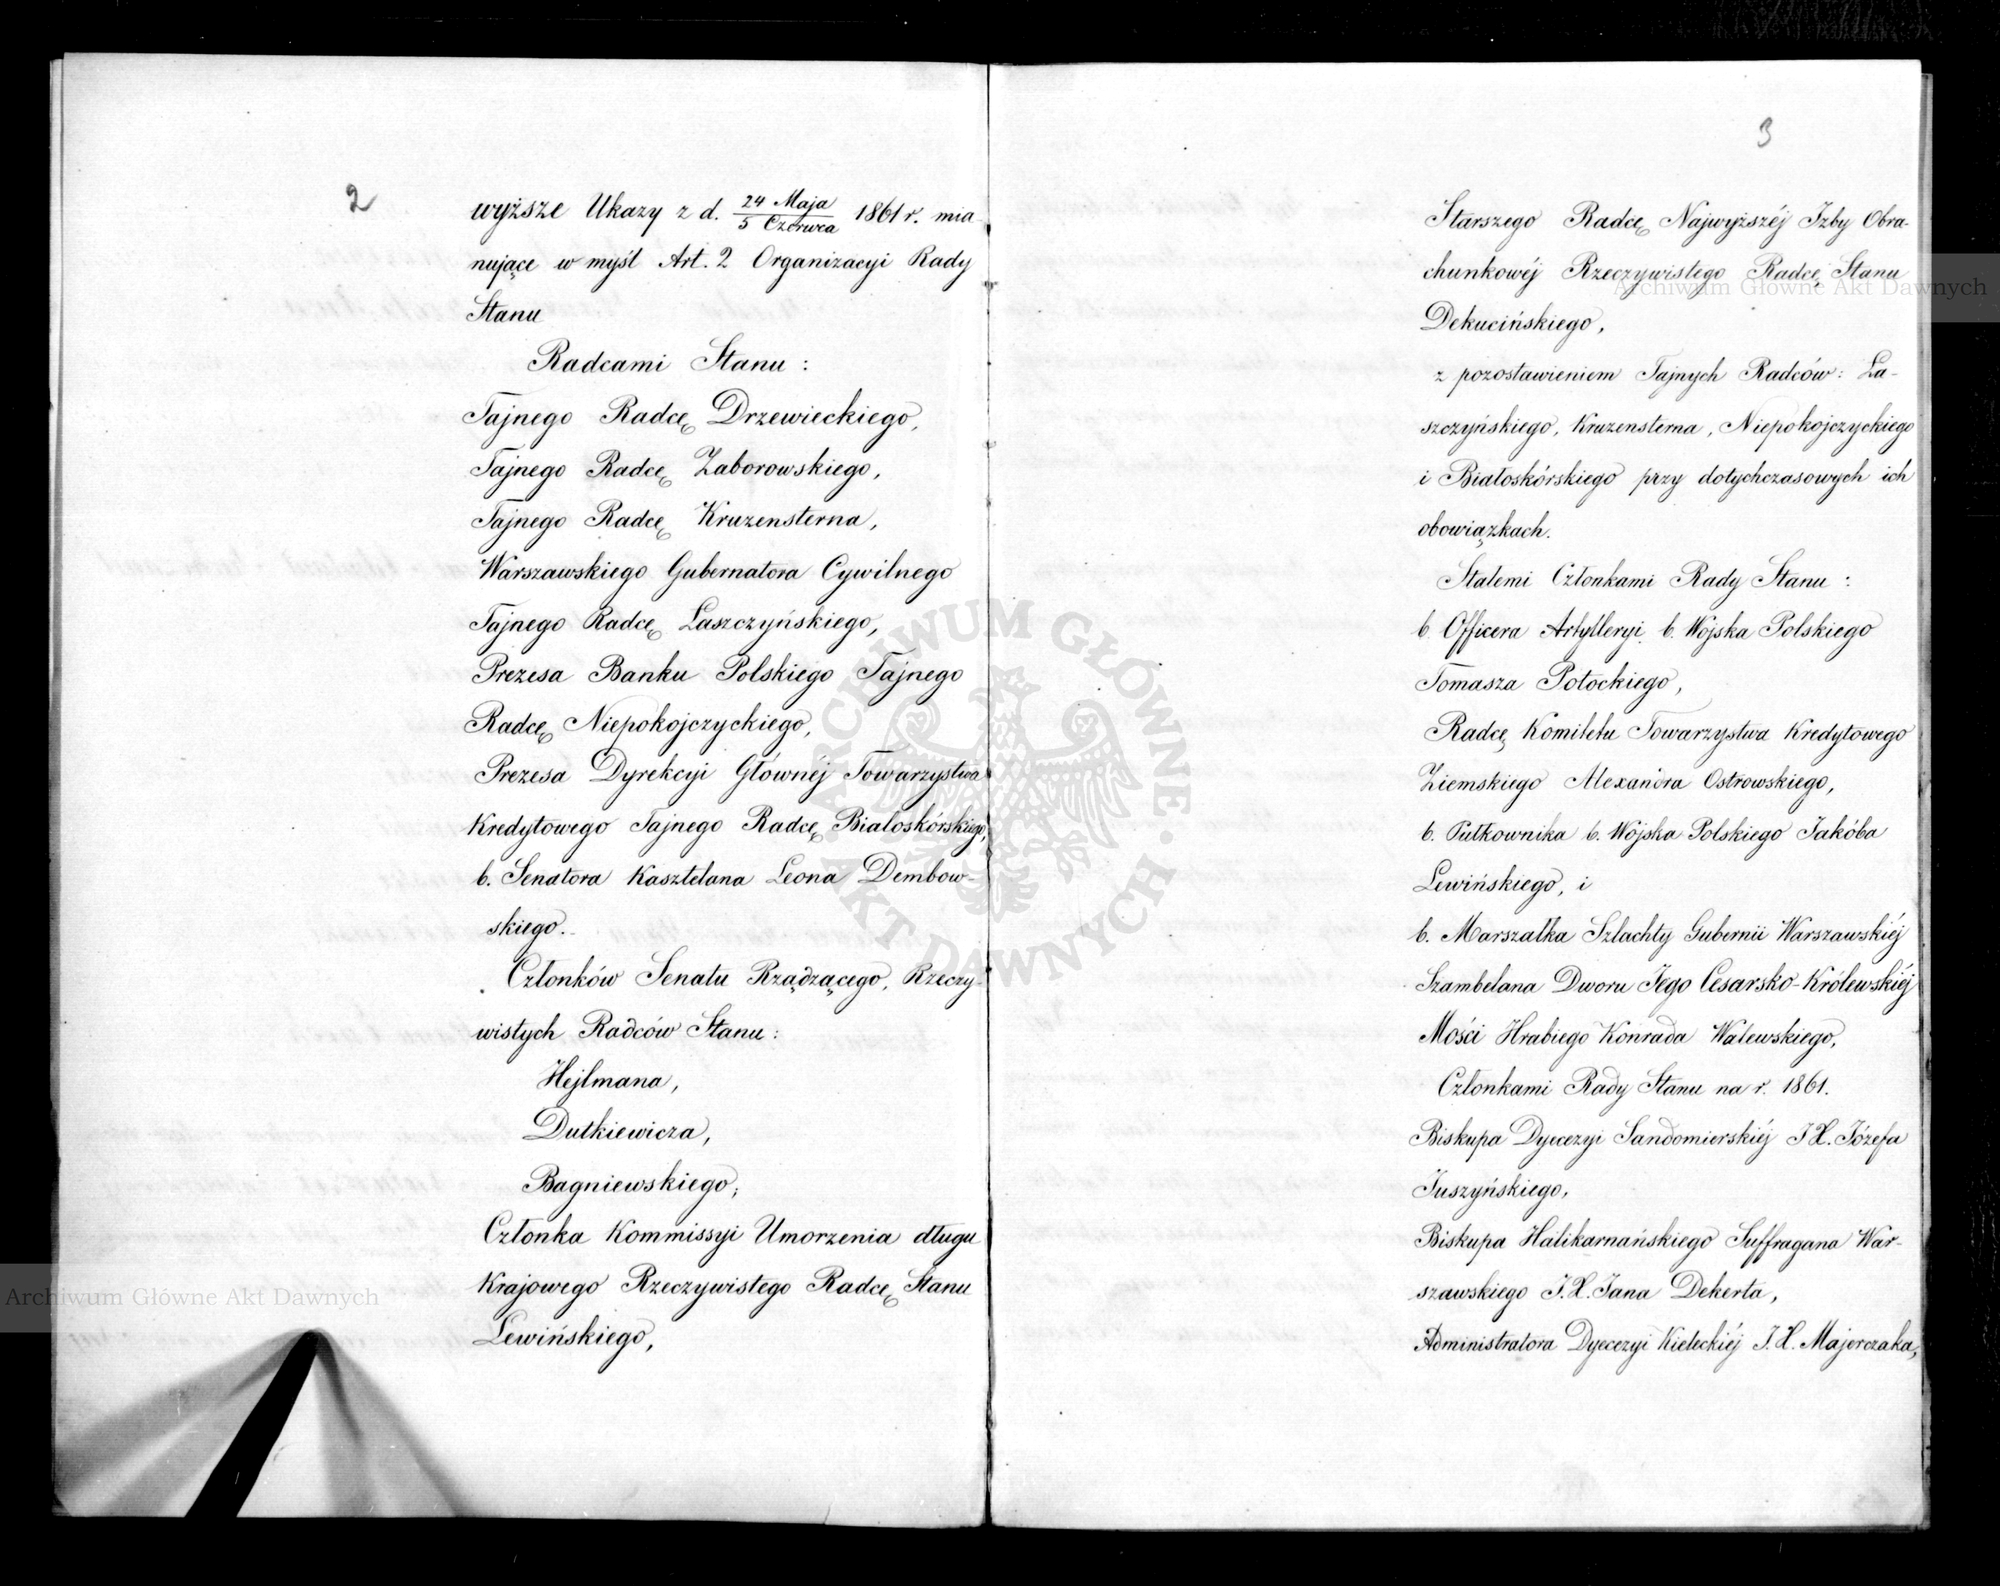 2
wyższe Ukazy z d. 24 Maja / 5 Czerwca 1861 r. mia-
nujące w myśl Art. 2 Organizacyi Rady
Stanu
Radcami Stanu:
Tajnego Radcę Drzewieckiego,
Tajnego Radcę Zaborowskiego,
Tajnego Radcę Kruzensterna,
Warszawskiego Gubernatora Cywilnego
Tajnego Radcę Łaszczyńskiego,
Prezesa Banku Polskiego Tajnego
Radcę Niepokojczyckiego,
Prezesa Dyrekcyi Głównéj Towarzystwa
Kredytowego Tajnego Radcę Białoskórskiego,
b. Senatora Kasztelana Leona Dembow-
skiego.
Członków Senatu Rządzącego, Rzeczy-
wistych Radców Stanu:
Hejlmana,
Dutkiewicza,
Bagniewskiego;
Członka Kommissyi Umorzenia długu
Krajowego Rzeczywistego Radcę Stanu
Lewińskiego,
3
Starszego Radcę Najwyższéj Izby Obra-
chunkowéj Rzeczywistego Radcę Stanu
Dekucińskiego,
z pozostawieniem Tajnych Radców: Ła-
szczyńskiego, Kruzensterna, Niepokojczyckiego
i Białoskórskiego przy dotychczasowych ich
obowiązkach.
Stałemi Członkami Rady Stanu:
b. Officera Artylleryi b. Wojska Polskiego
Tomasza Potockiego,
Radcę Komitetu Towarzystwa Kredytowego
Ziemskiego Alexandra Ostrowskiego,
b. Pułkownika b. Wojska Polskiego Jakóba
Lewińskiego, i
b. Marszałka Szlachty Gubernii Warszawskiéj
Szambelana Dworu Jego Cesarsko-Królewskiéj
Mości Hrabiego Konrada Walewskiego,
Członkami Rady Stanu na r. 1861.
Biskupa Dyecezyi Sandomierskiéj J.X. Józefa
Juszyńskiego,
Biskupa Halikarnańskiego Suffragana War-
szawskiego J.X. Jana Dekerta,
Administratora Dyecezyi Kieleckiéj J.X. Majerczaka,
Archiwum Główne Akt Dawnych
ARCHIWUM GŁÓWNE · AKT DAWNYCH ·
Archiwum Główne Akt Dawnych